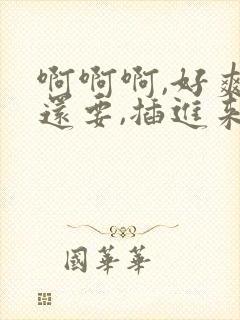 啊啊啊,好爽
還要,插進來
國華華